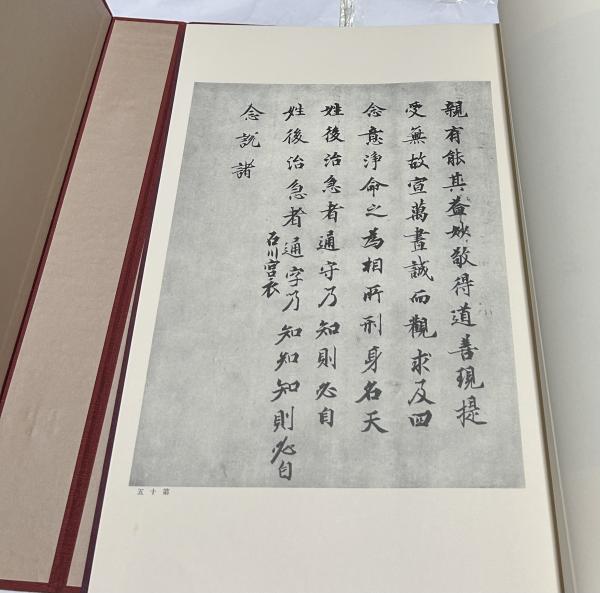 親有能其益妙敬得道善現提
受無故宣萬晝誠而觀求及四
念意淨命之為相所刑身名天
姓後治急者通守乃知則必自
姓後治急者通字乃知知知則必自
石川宮衣
念説諸
五十第